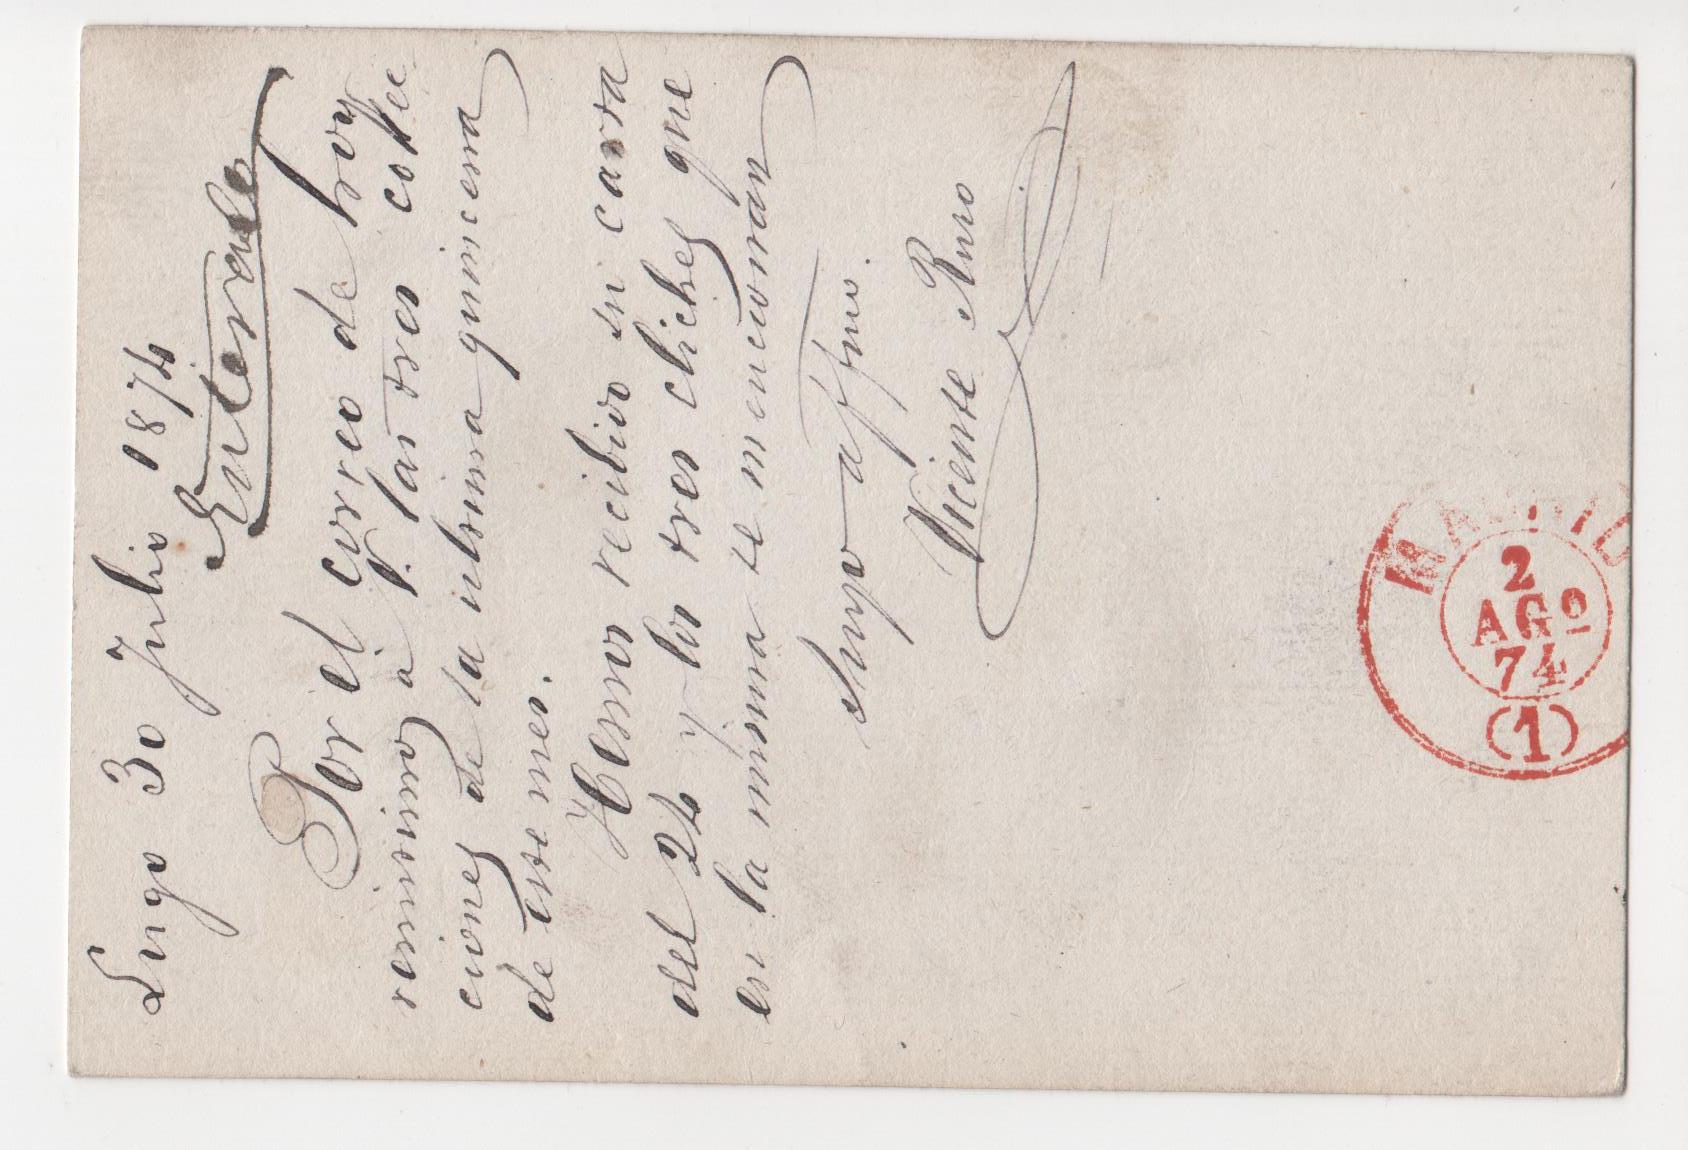 Lugo 30 Julio 1874
Enterado
Por el correo de hoy
remitimos á V. las tres colec
ciones de la ultima quincena
de este mes.
Hemos recibido su carta
del 24 y los tres cliches que
en la misma se mencionan
Suyo affmo.
Vicente
MADRID
2
AGO
74
(1)